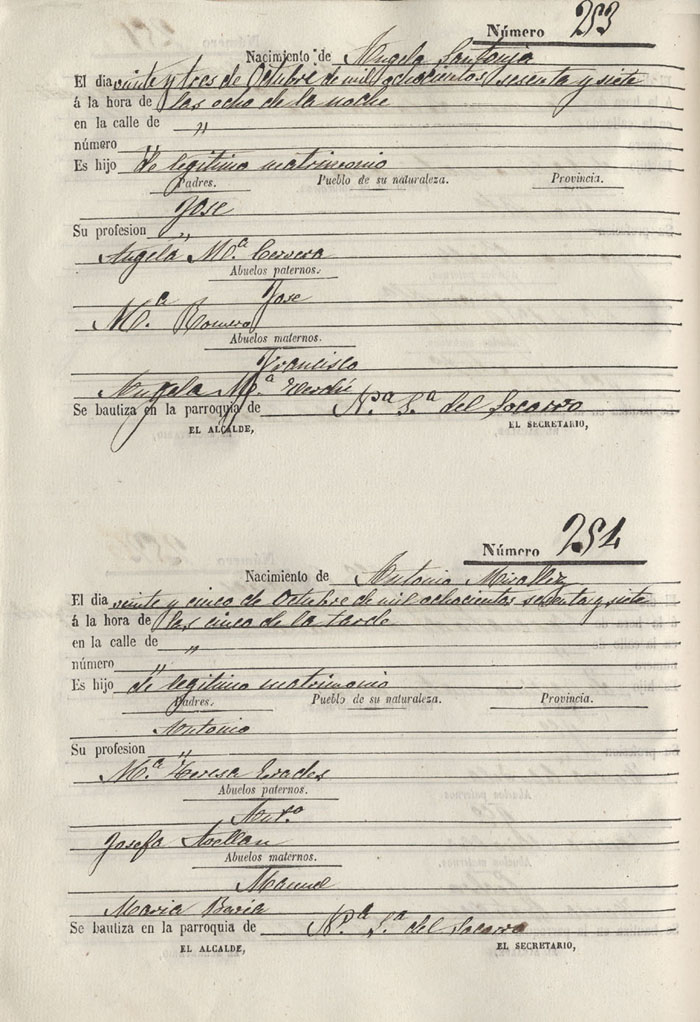 Número 253
Nacimiento de Angela Santonja
El dia veinte y tres de Octubre de mil ochocientos sesenta y siete
á la hora de las ocho de la noche
en la calle de "
número "
Es hijo de legitimo matrimonio
Padres. Pueblo de su naturaleza. Provincia.
Jose
Su profesion "
Angela Mª Cervera
Abuelos paternos.
Jose
Mª Romero
Abuelos maternos.
Francisco
Angela Mª Verdú
Se bautiza en la parroquia de Nª Sª del Socorro
EL ALCALDE, EL SECRETARIO,
Número 254
Nacimiento de Antonio Miralles
El dia veinte y cinco de Octubre de mil ochocientos sesenta y siete
á la hora de las cinco de la tarde
en la calle de "
número "
Es hijo de legitimo matrimonio
Padres. Pueblo de su naturaleza. Provincia.
Antonio
Su profesion "
Mª Teresa
Abuelos paternos.
Antº
Josefa Avellan
Abuelos maternos.
Manuel
Maria
Se bautiza en la parroquia de Nª Sª del Socorro
EL ALCALDE, EL SECRETARIO,